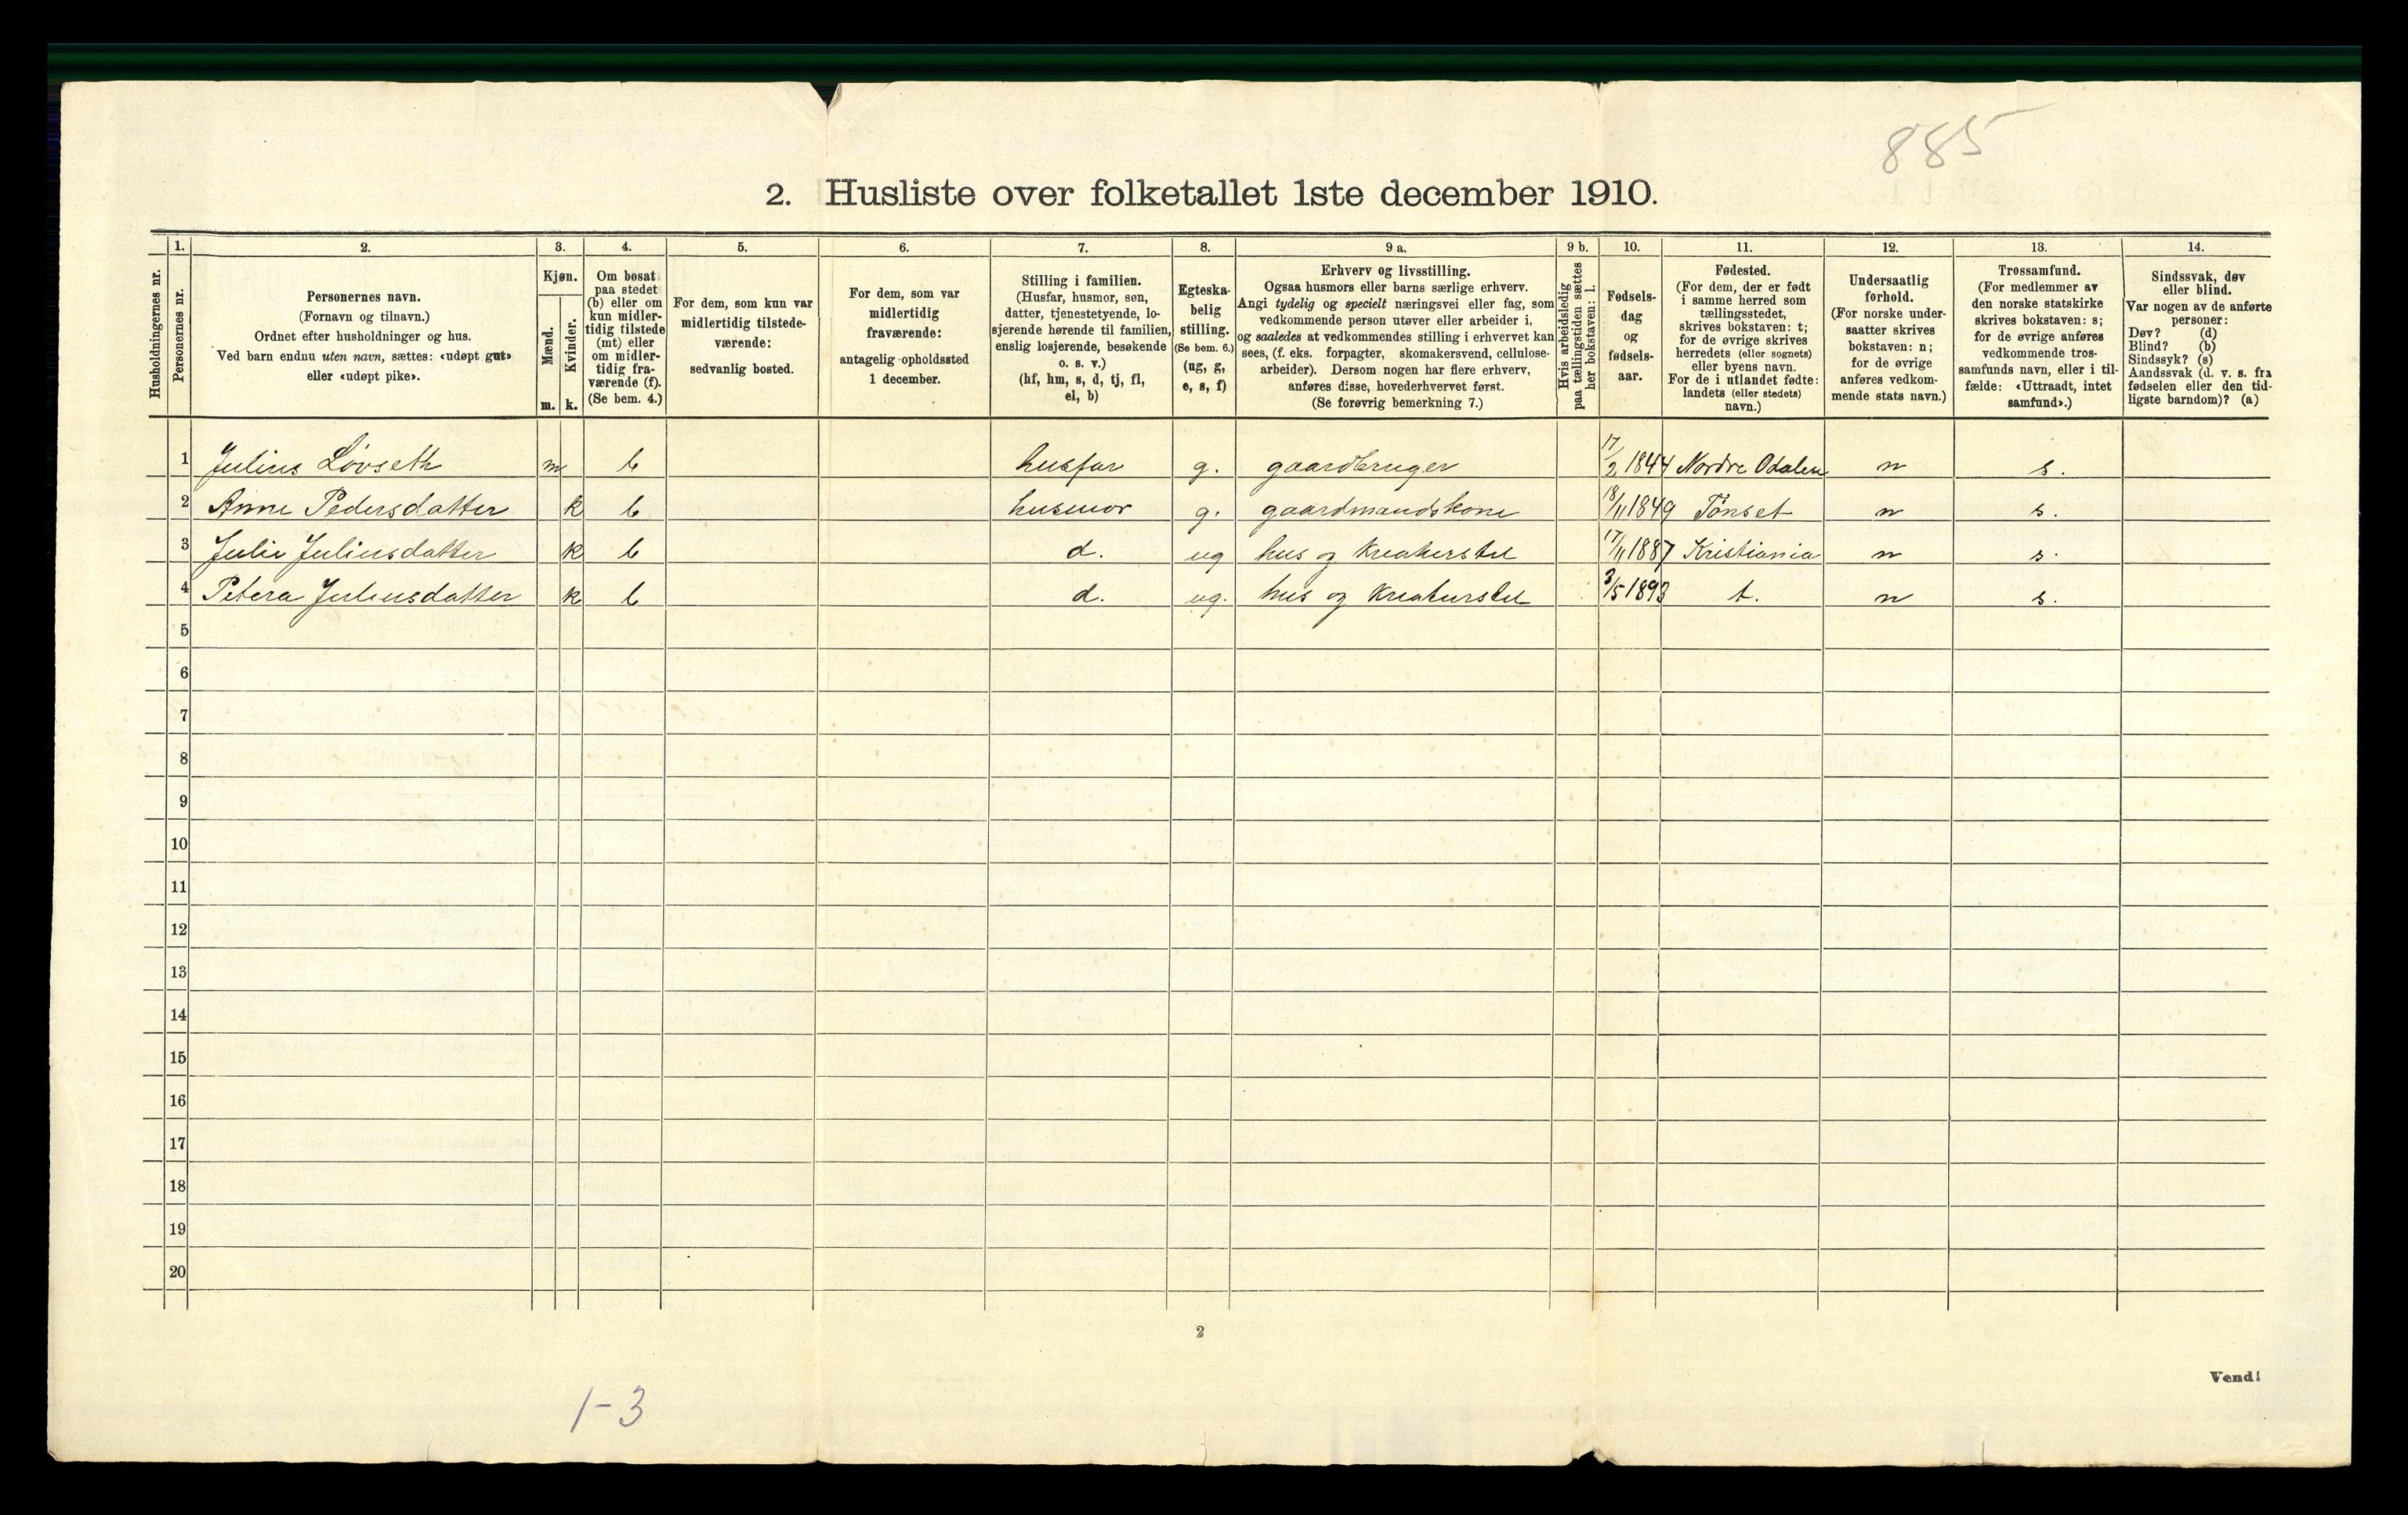 885
2. Husliste over folketallet 1ste december 1910.
Husholdningernes nr.
1.
Personernes nr.
2.
Personernes navn.
(Fornavn og tilnavn.)
Ordnet efter husholdninger og hus.
Ved barn endnu uten navn, sættes: «udøpt gut»
eller «udøpt pike».
3.
Kjøn.
Mænd.
m.
Kvinder.
k.
4.
Om bosat
paa stedet
(b) eller om
kun midler-
tidig tilstede
(mt) eller
om midler-
tidig fra-
værende (f).
(Se bem. 4.)
5.
For dem, som kun var
midlertidig tilstede-
værende:
sedvanlig bosted.
6.
For dem, som var
midlertidig
fraværende:
antagelig opholdssted
1 december.
7.
Stilling i familien.
(Husfar, husmor, søn,
datter, tjenestetyende, lo-
sjerende hørende til familien,
enslig losjerende, besøkende
o. s. v.)
(hf, hm, s, d, tj, fl,
el, b)
8.
Egteska-
belig
stilling.
(Se bem. 6.)
(ug, g,
e, s, f)
9 a.
Erhverv og livsstilling.
Ogsaa husmors eller barns særlige erhverv.
Angi tydelig og specielt næringsvei eller fag, som
vedkommende person utøver eller arbeider i,
og saaledes at vedkommendes stilling i erhvervet kan
sees, (f. eks. forpagter, skomakersvend, cellulose-
arbeider). Dersom nogen har flere erhverv,
anføres disse, hovederhvervet først.
(Se forøvrig bemerkning 7.)
9 b.
Hvis arbeidsledig
paa tællingstiden sættes
her bokstaven: l.
10.
Fødsels-
dag
og
fødsels-
aar.
11.
Fødested.
(For dem, der er født
i samme herred som
tællingsstedet,
skrives bokstaven: t;
for de øvrige skrives
herredets (eller sognets)
eller byens navn.
For de i utlandet fødte:
landets (eller stedets)
navn.)
12.
Undersaatlig
forhold.
(For norske under-
saatter skrives
bokstaven: n;
for de øvrige
anføres vedkom-
mende stats navn.)
13.
Trossamfund.
(For medlemmer av
den norske statskirke
skrives bokstaven: s;
for de øvrige anføres
vedkommende tros-
samfunds navn, eller i til-
fælde: «Uttraadt, intet
samfund».)
14.
Sindssvak, døv
eller blind.
Var nogen av de anførte
personer:
Døv? (d)
Blind? (b)
Sindssyk? (s)
Aandssvak (d. v. s. fra
fødselen eller den tid-
ligste barndom)? (a)
1 Julius Løvseth m b husfar g. gaardbruger 17/2 1844 Nordre Odalen n s.
2 Anne Pedersdatter k b husmor g. gaardmandskone 18/11 1849 Tønset n s.
3 Julie Juliusdatter k b d. ug hus og kreaturstel 17/11 1887 Kristiania n s.
4 Petera Juliusdatter k b d. ug. hus og kreaturstel 3/5 1893 t. n s.
5
6
7
8
9
10
11
12
13
14
15
16
17
18
19
20
2
Vend!
1-3